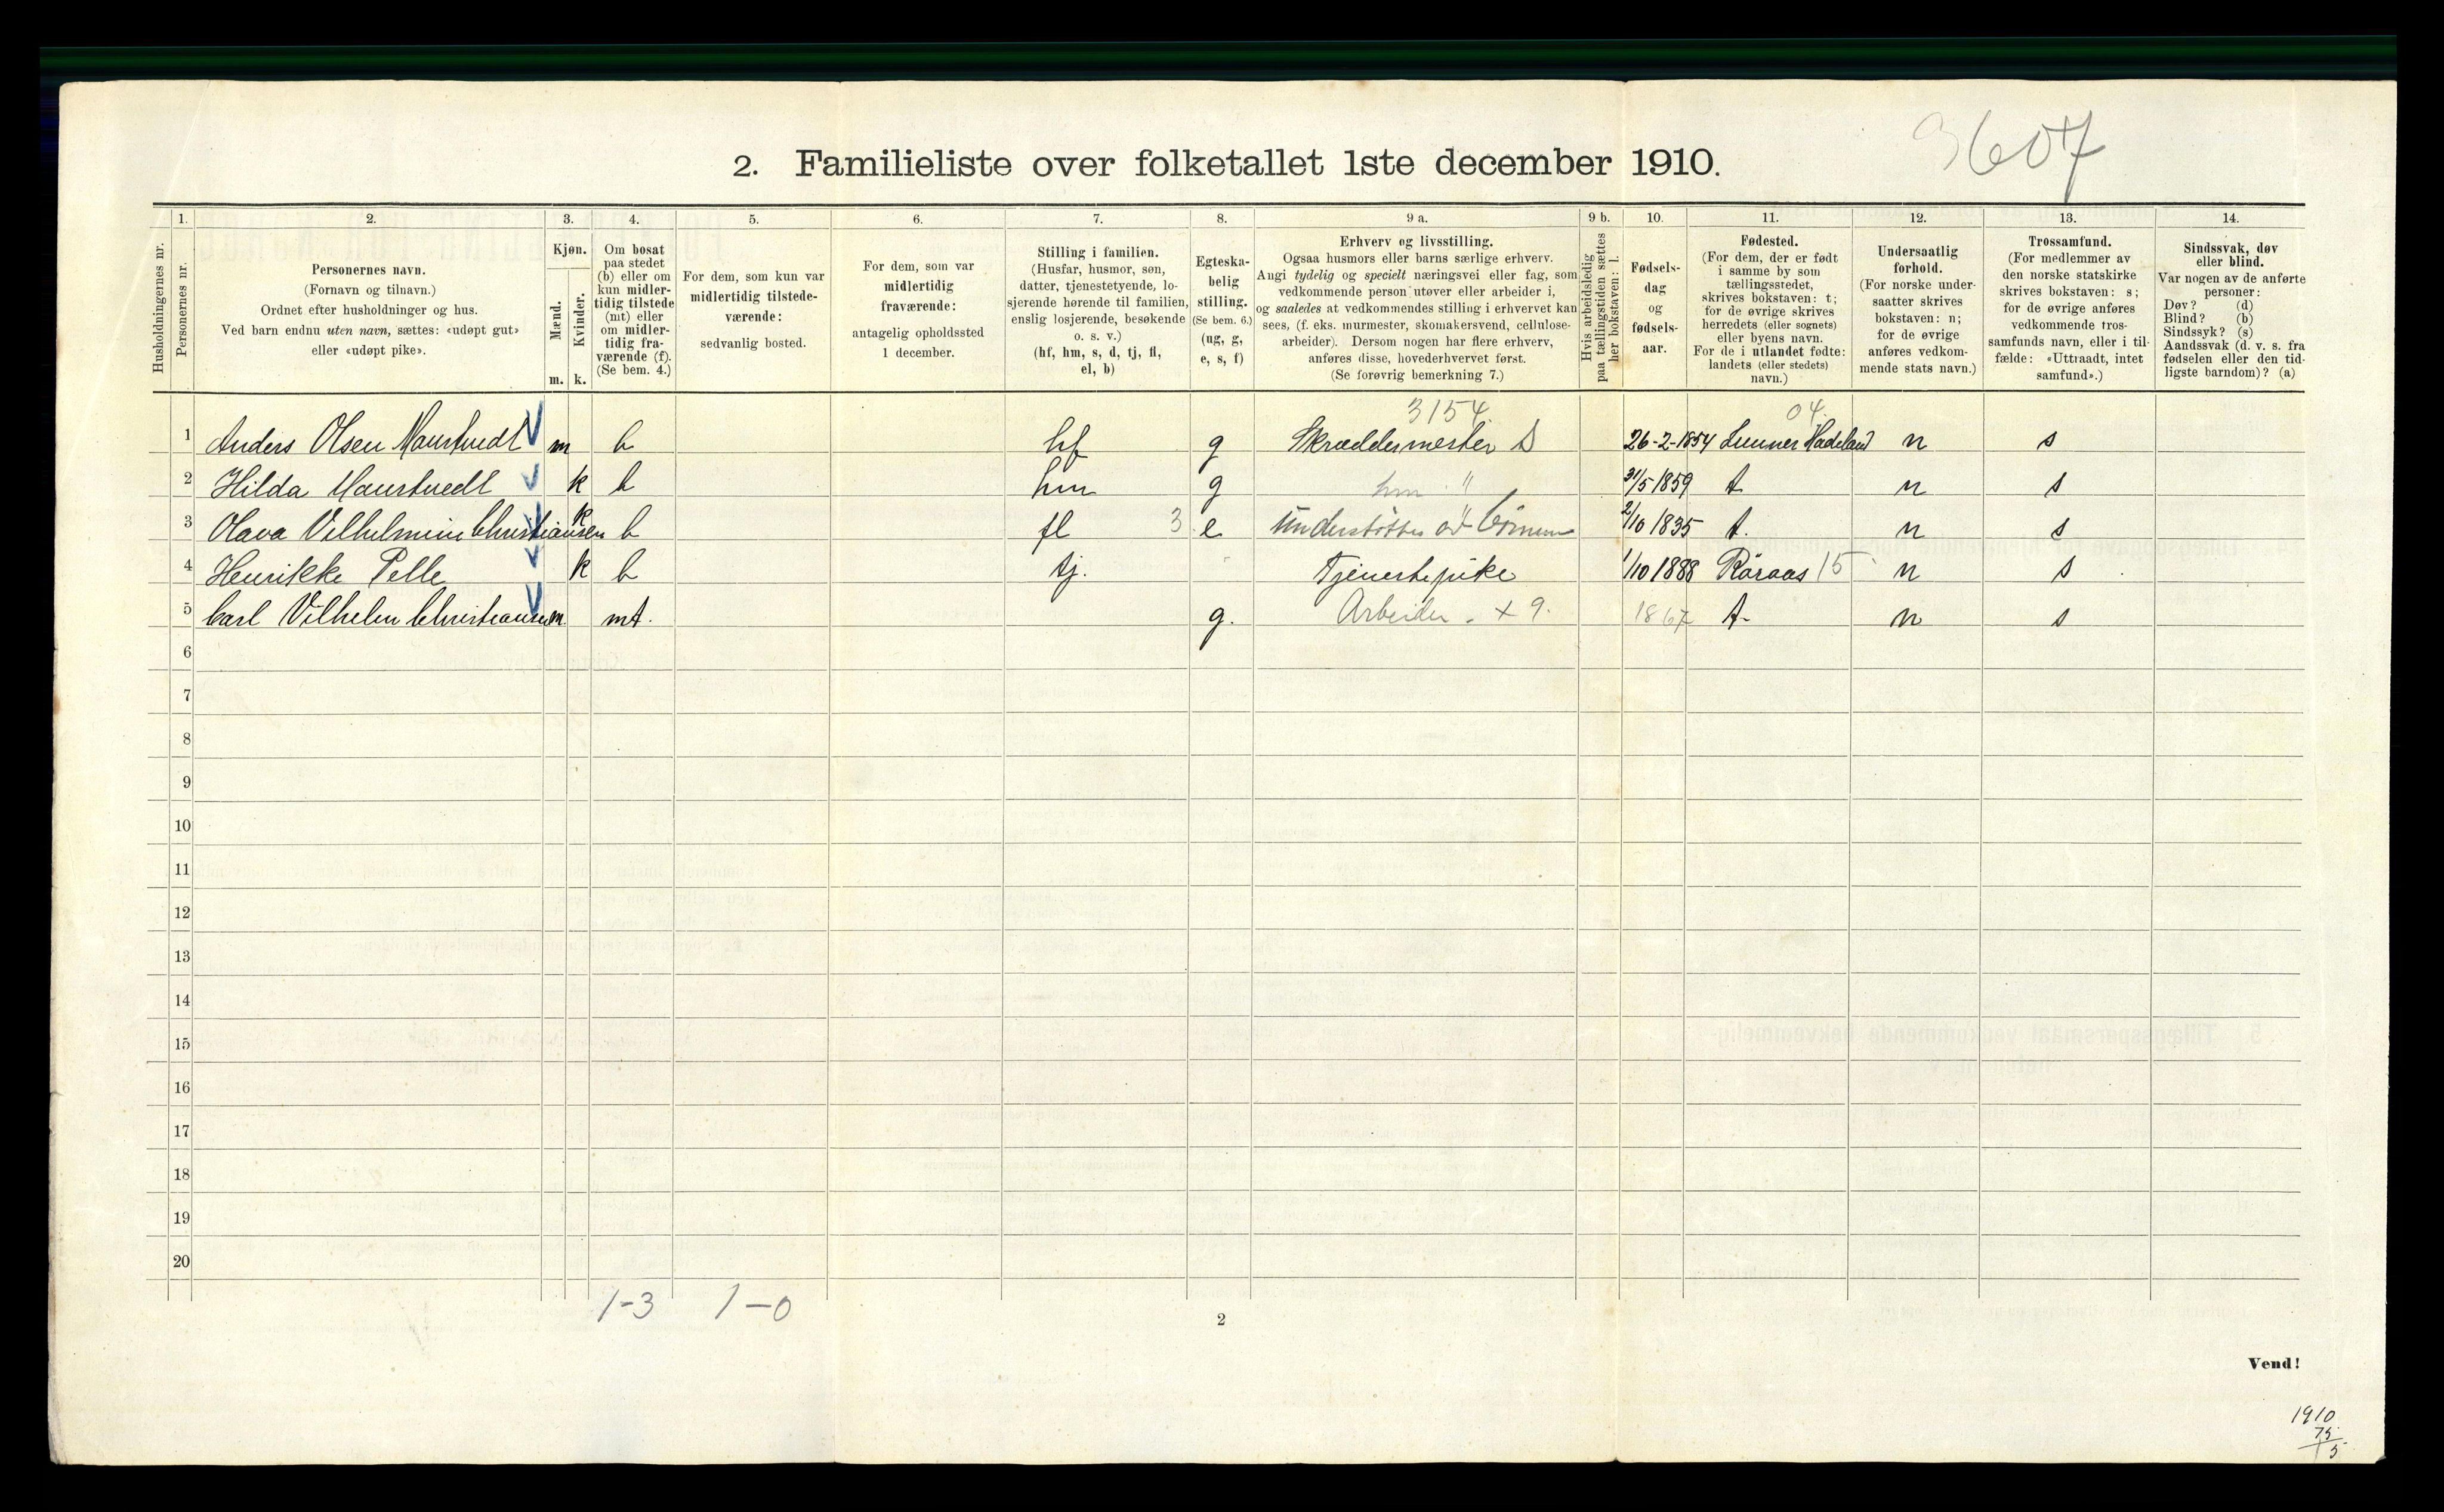 3607
2. Familieliste over folketallet 1ste december 1910.
Husholdningernes nr.
1.
Personernes nr.
2.
Personernes navn.
(Fornavn og tilnavn.)
Ordnet efter husholdninger og hus.
Ved barn endnu uten navn, sættes: «udøpt gut»
eller «udøpt pike».
3.
Kjøn.
Mænd.
Kvinder.
m. k.
4.
Om bosat
paa stedet
(b) eller om
kun midler-
tidig tilstede
(mt) eller
om midler-
tidig fra-
værende (f).
(Se bem. 4.)
5.
For dem, som kun var
midlertidig tilstede-
værende:
sedvanlig bosted.
6.
For dem, som var
midlertidig
fraværende:
antagelig opholdssted
1 december.
7.
Stilling i familien.
(Husfar, husmor, søn,
datter, tjenestetyende, lo-
sjerende hørende til familien,
enslig losjerende, besøkende
o. s. v.)
(hf, hm, s, d, tj, fl,
el, b)
8.
Egteska-
belig
stilling.
(Se bem. 6.)
(ug, g,
e, s, f)
9 a.
Erhverv og livsstilling.
Ogsaa husmors eller barns særlige erhverv.
Angi tydelig og specielt næringsvei eller fag, som
vedkommende person utøver eller arbeider i,
og saaledes at vedkommendes stilling i erhvervet kan
sees, (f. eks. murmester, skomakersvend, cellulose-
arbeider). Dersom nogen har flere erhverv,
anføres disse, hovederhvervet først.
(Se forøvrig bemerkning 7.)
9 b.
Hvis arbeidsledig
paa tællingstiden sættes
her bokstaven: l.
10.
Fødsels-
dag
og
fødsels-
aar.
11.
Fødested.
(For dem, der er født
i samme by som
tællingsstedet,
skrives bokstaven: t;
for de øvrige skrives
herredets (eller sognets)
eller byens navn.
For de i utlandet fødte:
landets (eller stedets)
navn.)
12.
Undersaatlig
forhold.
(For norske under-
saatter skrives
bokstaven: n;
for de øvrige
anføres vedkom-
mende stats navn.)
13.
Trossamfund.
(For medlemmer av
den norske statskirke
skrives bokstaven: s;
for de øvrige anføres
vedkommende tros-
samfunds navn, eller i til-
fælde: «Uttraadt, intet
samfund».)
14.
Sindssvak, døv
eller blind.
Var nogen av de anførte
personer:
Døv? (d)
Blind? (b)
Sindssyk? (s)
Aandssvak (d. v. s. fra
fødselen eller den tid-
ligste barndom)? (a)
3154 04.
1 Anders Olsen m b hf g Skræddermester S 26-2-1854 Lunner Hadeland n s
2 Hilda k b hm g hm " 31/5 1859 t n s
3 Olava Vilhelmine Christiansen k b fl 3 e understöttes av 2/10 1835 t. n s
4 Henrikke Pelle k b tj. Tjenestepike 1/10 1888 Röraas 15 n s
5 Carl Vilhelm Christiansen m mt. g. Arbeider. x 9. 1867 t- n s
6
7
8
9
10
11
12
13
14
15
16
17
18
19
20
1-3 1-0
2
Vend!
1910
75
5